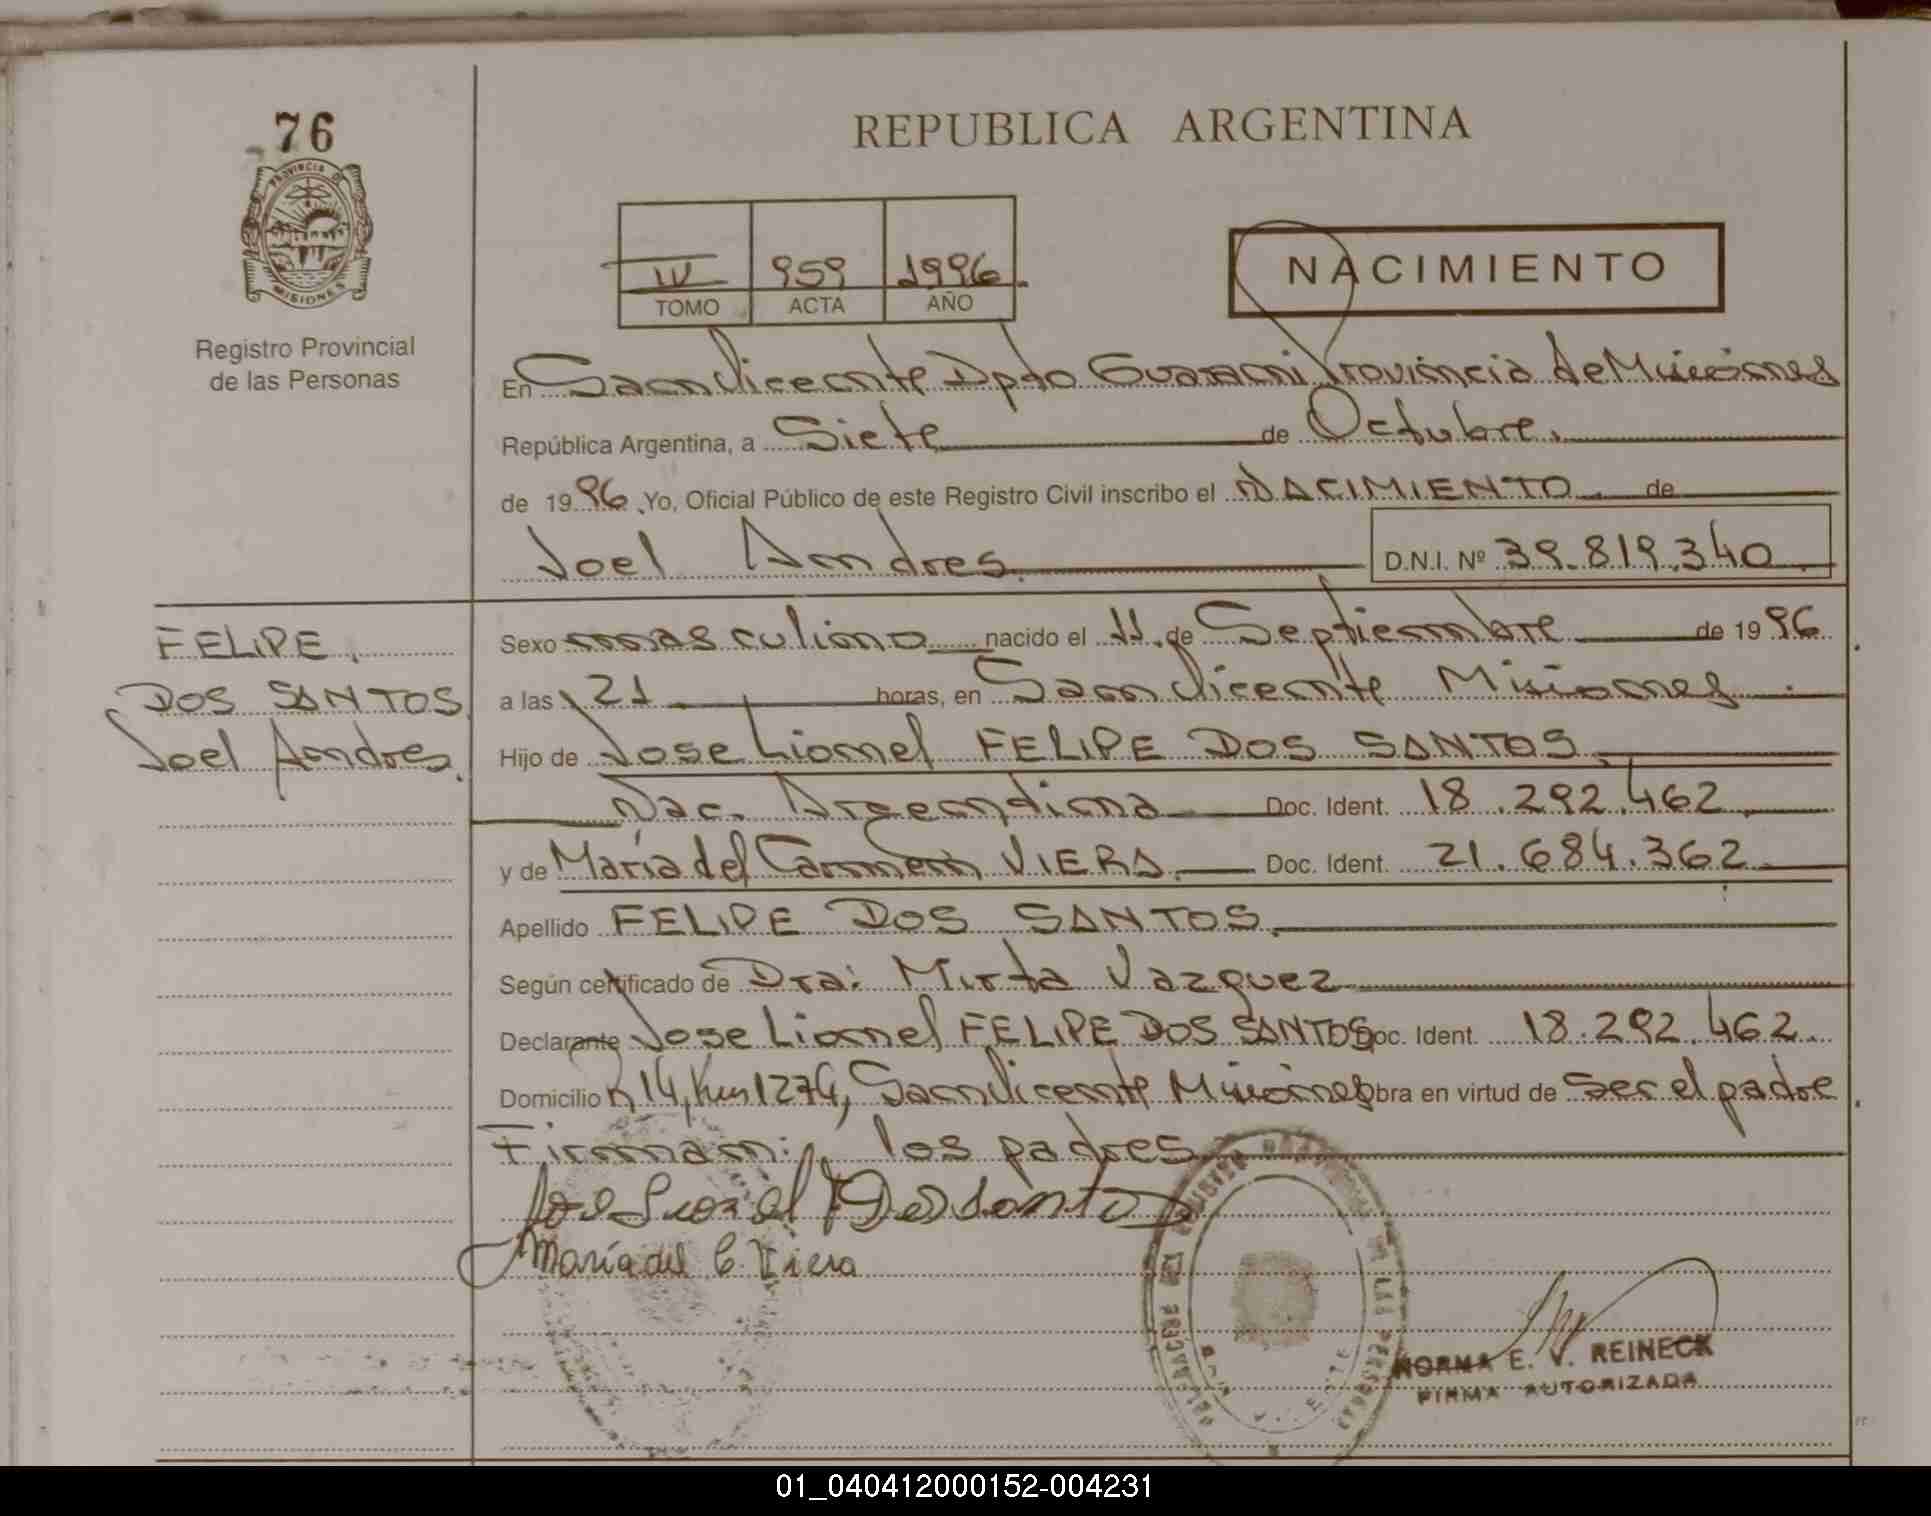 76
PROVINCIA DE
MISIONES
Registro Provincial
de las Personas
REPUBLICA ARGENTINA
IV 959 1996.
TOMO ACTA AÑO
NACIMIENTO
En San Vicente Dpto Guarani Provincia de Misiones
República Argentina, a Siete de Octubre.
de 1996. Yo, Oficial Público de este Registro Civil inscribo el NACIMIENTO de
Joel Andres. D.N.I. Nº 39.819.340.
FELIPE
DOS SANTOS
Joel Andres.
Sexo masculino nacido el 11 de Septiembre de 1996.
a las 21 horas, en San Vicente Misiones.
Hijo de Jose Lionel FELIPE DOS SANTOS
Nac. Argentina Doc. Ident. 18.292.462
y de María del Carmen VIERA. Doc. Ident. 21.684.362
Apellido FELIPE DOS SANTOS.
Según certificado de Dra: Mirta Vazquez
Declarante Jose Lionel FELIPE DOS SANTOS Doc. Ident. 18.292.462.
Domicilio R 14, Km 1274, San Vicente Misiones obra en virtud de ser el padre
Firman: los padres
Jose Lionel F Dos Santos
María del C. Viera
NORMA E. V. REINECK
FIRMA AUTORIZADA
01_040412000152-004231